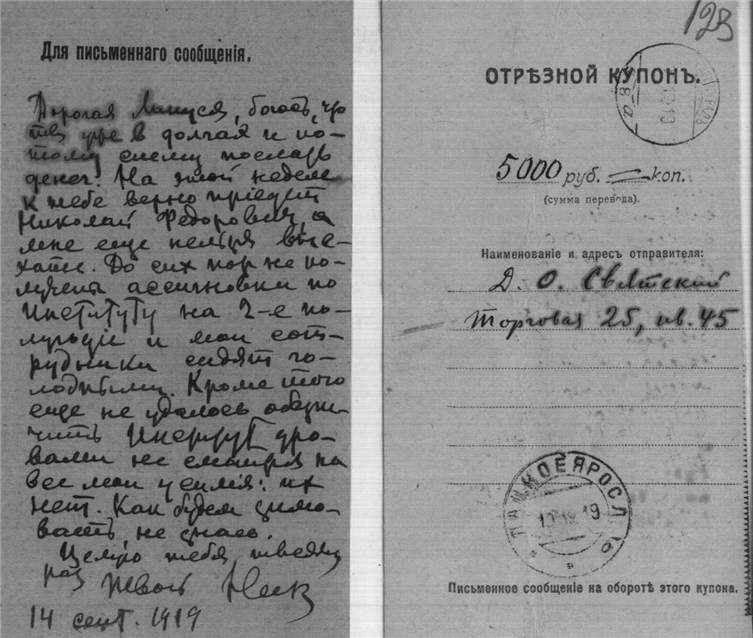 Для письменнаго сообщенія.
Дорогая Мануся, боюсь, что
ты уже в долгах и по-
тому спешу послать
денег. На этой неделе
к тебе верно приедет
Николай Федорович, а
мне еще нельзя вые-
хать. До сих пор не по-
лучены ассигновки по
Институту на 2-е по-
лугодие и мои сот-
рудники сидят го-
лодными. Кроме того
еще не удалось обезпе-
чить Институт дро-
вами не смотря на
все мои усилия: их
нет. Как будем зимо-
вать, не знаю.
Целую тебя, 
раз Твой
14 сент. 1919
123
ОТРѢЗНОЙ КУПОНЪ.
5000 руб. — коп.
(сумма перевода).
Наименованіе и адресъ отправителя:
Д. О. Святский
Торговая 25, кв. 45
ПАШКОЕ ЯРОСЛ
19
Письменное сообщеніе на оборотѣ этого купона.